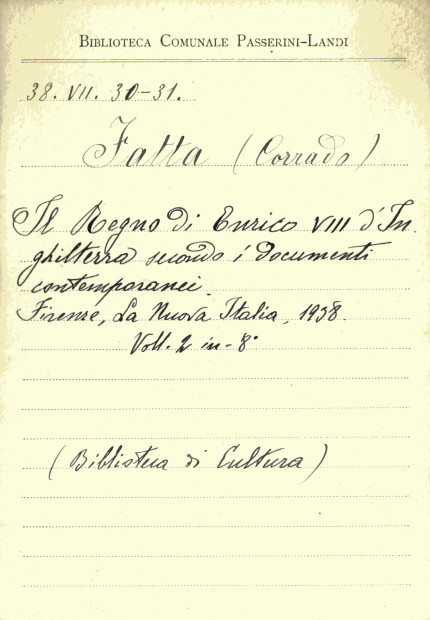 BIBLIOTECA COMUNALE PASSERINI-LANDI
38. VII. 30-31.
Fatta (Corrado)
Il Regno di Enrico VIII d'In
ghilterra secondo i documenti
contemporanei.
Firenze, La Nuova Italia, 1938.
Voll. 2 in-8°
(Biblioteca di Cultura)